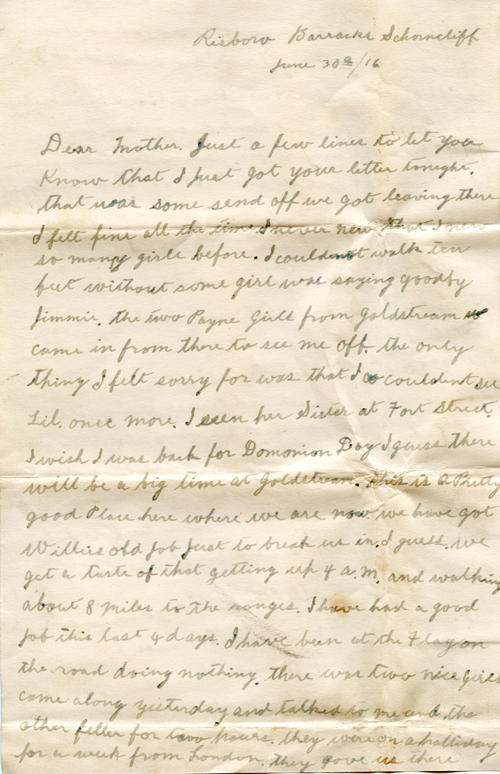 Risboro Barracks Schorncliff
June 30th/16
Dear Mother. Just a few lines to let you
Know that I just got your letter tonight.
that was some send off we got leaving there
I felt fine all the time I never new that I new
so many girls before. I couldent walk ten
feet without some girl was saying goodby
Jimmie. the two Payne Girls from Goldstream
came in from there to see me off. the only
thing I felt sorry for was that I couldent see
Lil. once more. I seen her Sister at Fort Street.
I wish I was back for Domonion Day I guess there
will be a big time at Goldstream. This is a Pretty
good Place here where we are now we have got
Willies old job just to break us in. I guess. we
get a taste of that getting up 4 a.m. and walking
about 8 miles to the ranges. I have had a good
job this last 4 days. I have been at the Flag on
the road doing nothing. there was two nice Girls
came along yesterday and talked to me and the
other feller for two hours. they were on a halliday
for a week from London. they gove us there